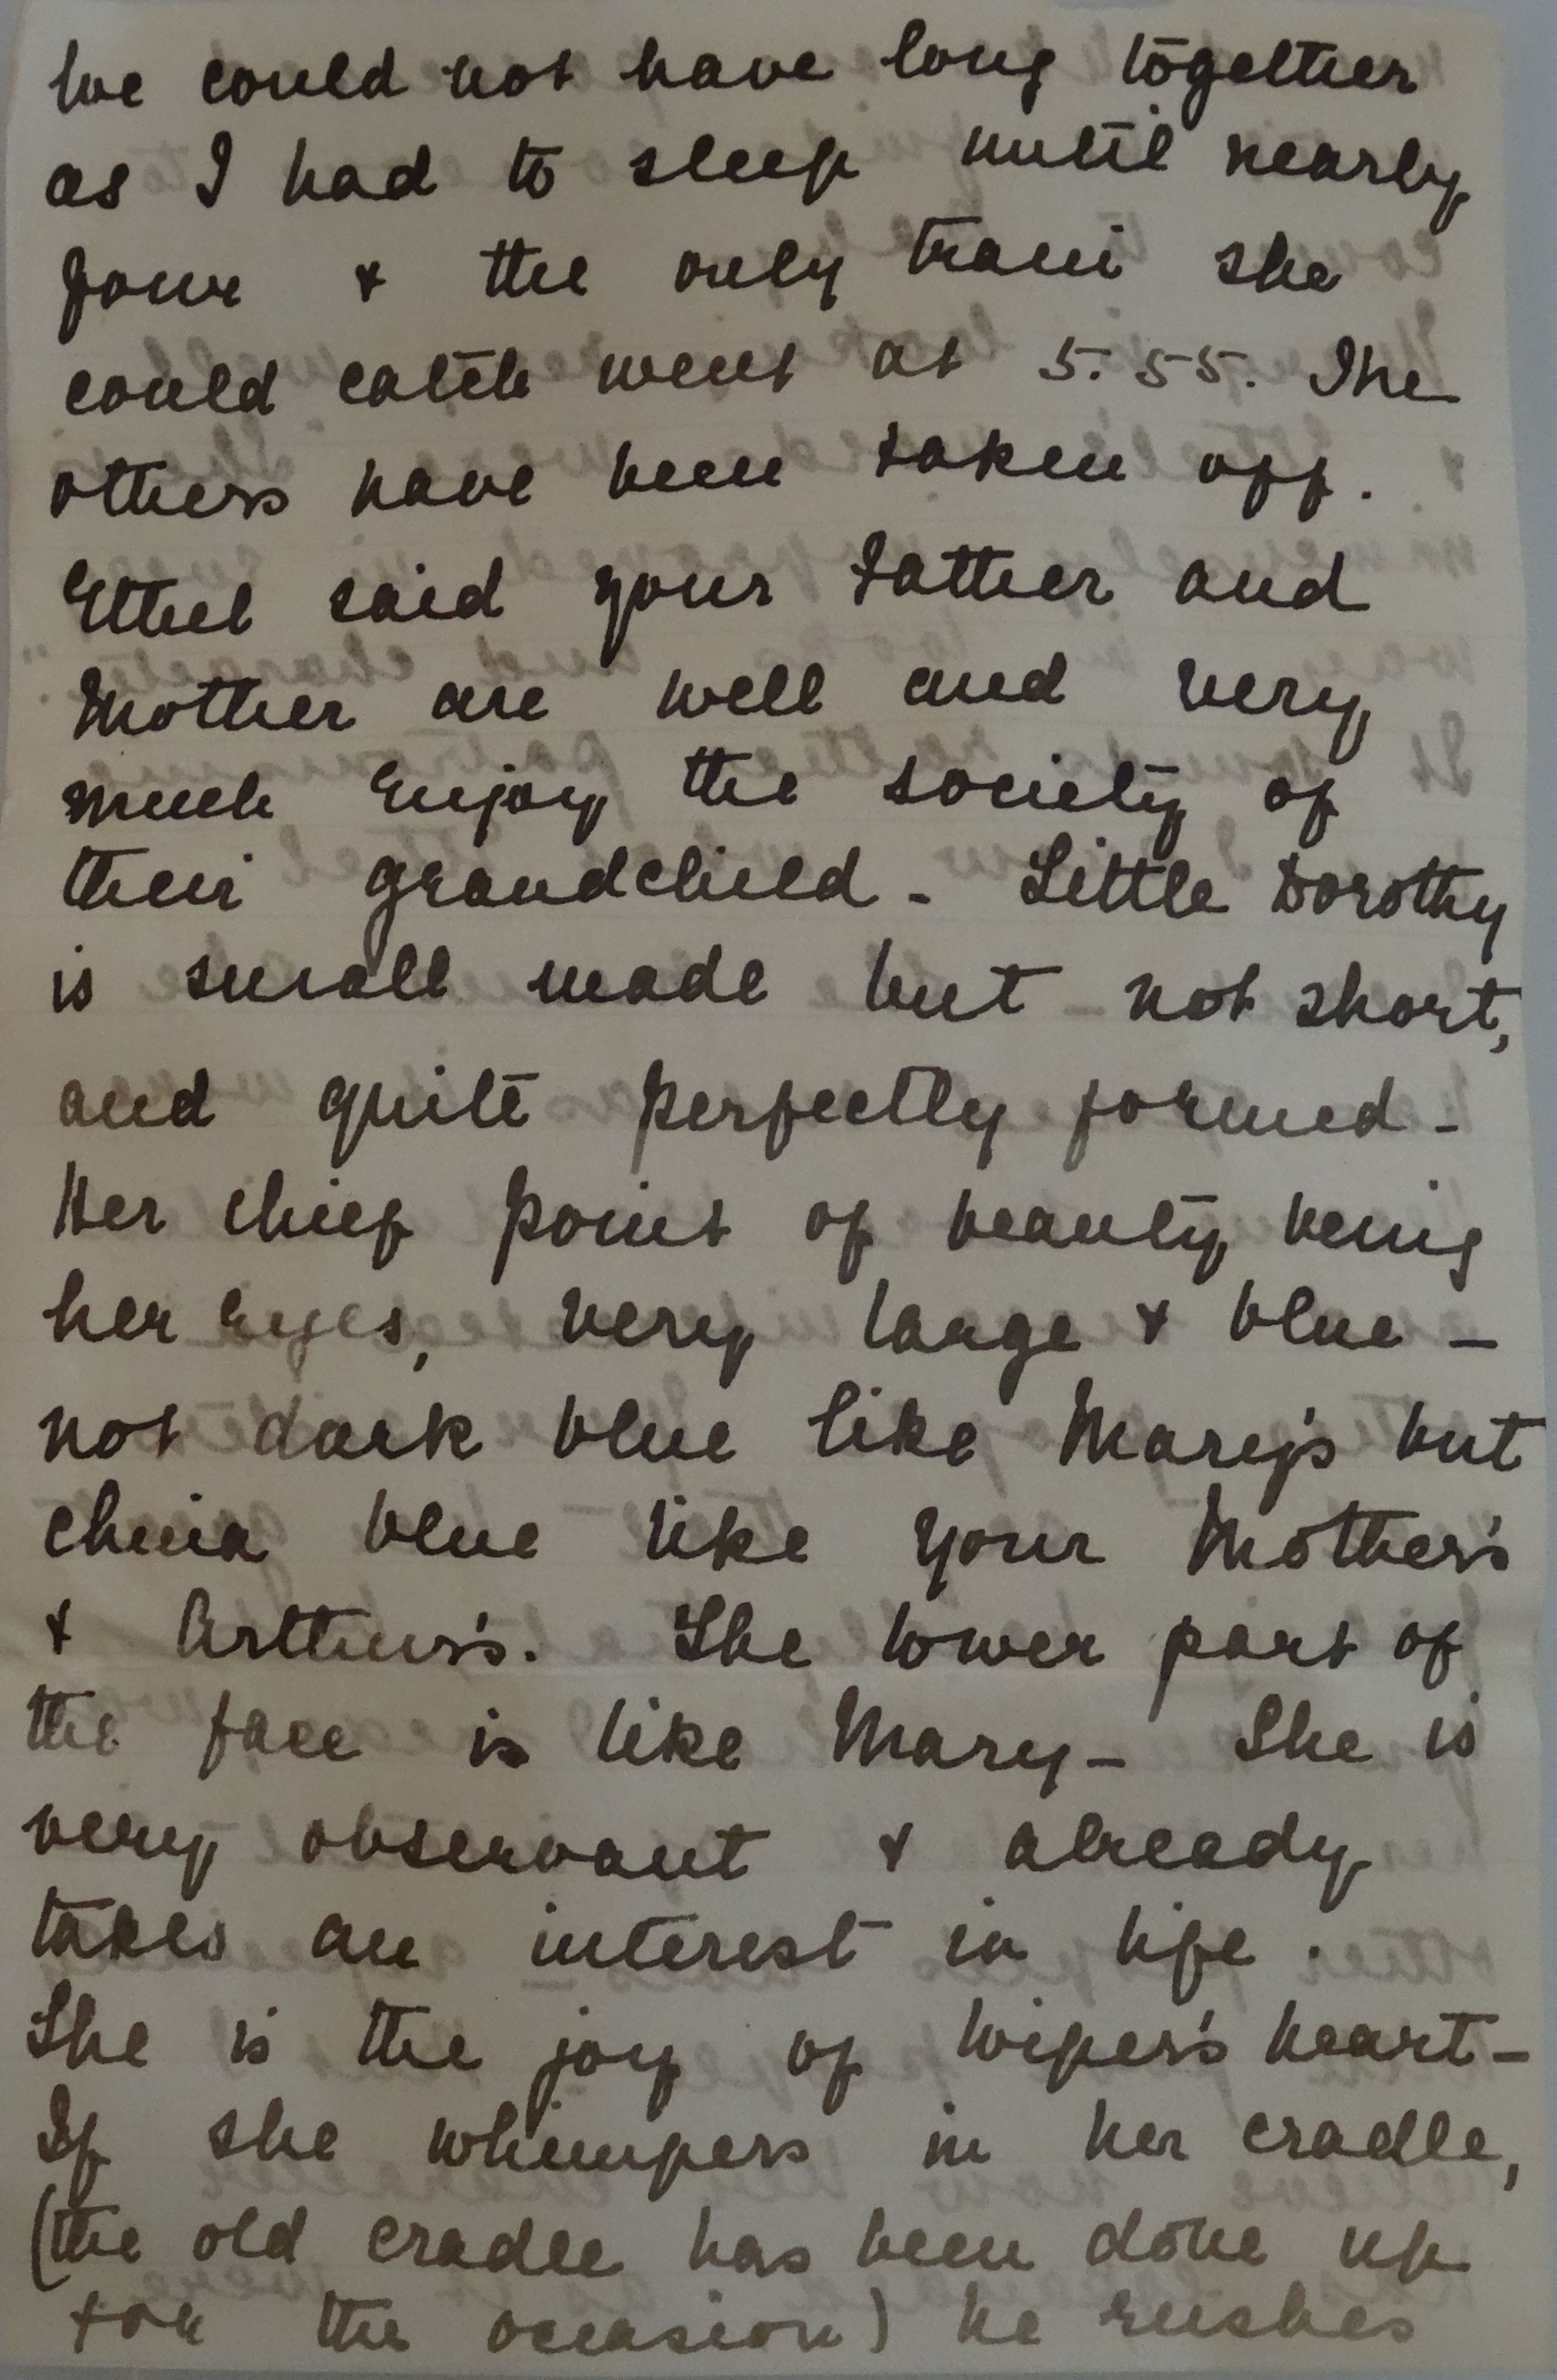 We could not have long together
as I had to sleep until nearly
four & the only train she
could catch went at 5.55. The
others have been taken off.
Ethel said your Father and
Mother are well and very
much enjoy the society of
their grandchild - Little Dorothy
is small made but not short,
and quite perfectly formed -
Her chief point of beauty being
her eyes, very large & blue -
not dark blue like Mary's but
china blue like your Mother's
& Arthur's. The lower part of
the face is like Mary - She is
very observant & already
takes an interest in life.
She is the joy of Wiper's heart -
If she whimpers in her cradle,
(the old cradle has been done up
for the occasion) he rushes